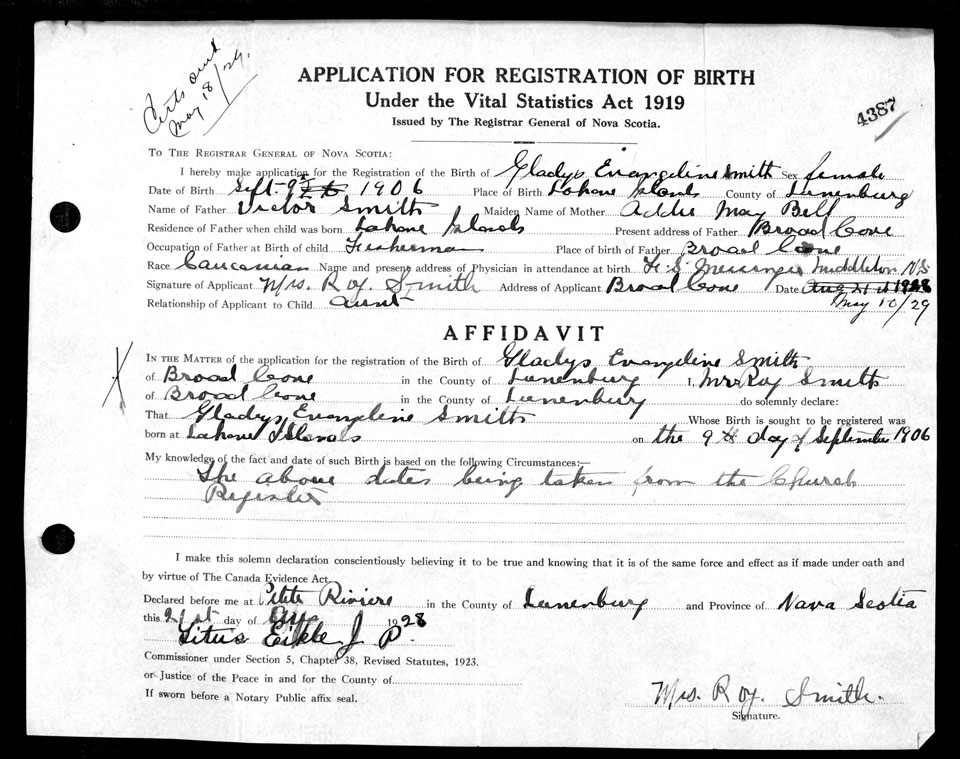 Certs out
May 18/29.
APPLICATION FOR REGISTRATION OF BIRTH
Under the Vital Statistics Act 1919
Issued by The Registrar General of Nova Scotia.
4387
TO THE REGISTRAR GENERAL OF NOVA SCOTIA:
I hereby make application for the Registration of the Birth of Gladys Evangeline Smith Sex female
Date of Birth Sept-9 1906 Place of Birth Lahave Islands County of Lunenburg
Name of Father Victor Smith Maiden Name of Mother Addie May Bell
Residence of Father when child was born Lahave Islands Present address of Father Broad Cove
Occupation of Father at Birth of child Fisherman Place of birth of Father Broad Cove
Race Caucasian Name and present address of Physician in attendance at birth F. S. Messenger Middleton NS
Signature of Applicant Mrs. Roy Smith Address of Applicant Broad Cove Date Aug 21st 1928
Relationship of Applicant to Child aunt May 10/29
AFFIDAVIT
IN THE MATTER of the application for the registration of the Birth of Gladys Evangeline Smith
of Broad Cove in the County of Lunenburg I, Mrs Roy Smith
of Broad Cove in the County of Lunenburg do solemnly declare:
That Gladys Evangeline Smith Whose Birth is sought to be registered was
born at Lahave Islands on the 9th day of September 1906
My knowledge of the fact and date of such Birth is based on the following Circumstances:—
The above dates being taken from the Church
Register
I make this solemn declaration conscientiously believing it to be true and knowing that it is of the same force and effect as if made under oath and
by virtue of The Canada Evidence Act.
Declared before me at Petite Riviere in the County of Lunenburg and Province of Nova Scotia
this 21st day of Aug 1928
Titus J P
Commissioner under Section 5, Chapter 38, Revised Statutes, 1923.
or Justice of the Peace in and for the County of
If sworn before a Notary Public affix seal.
Mrs. Roy. Smith.
Signature.